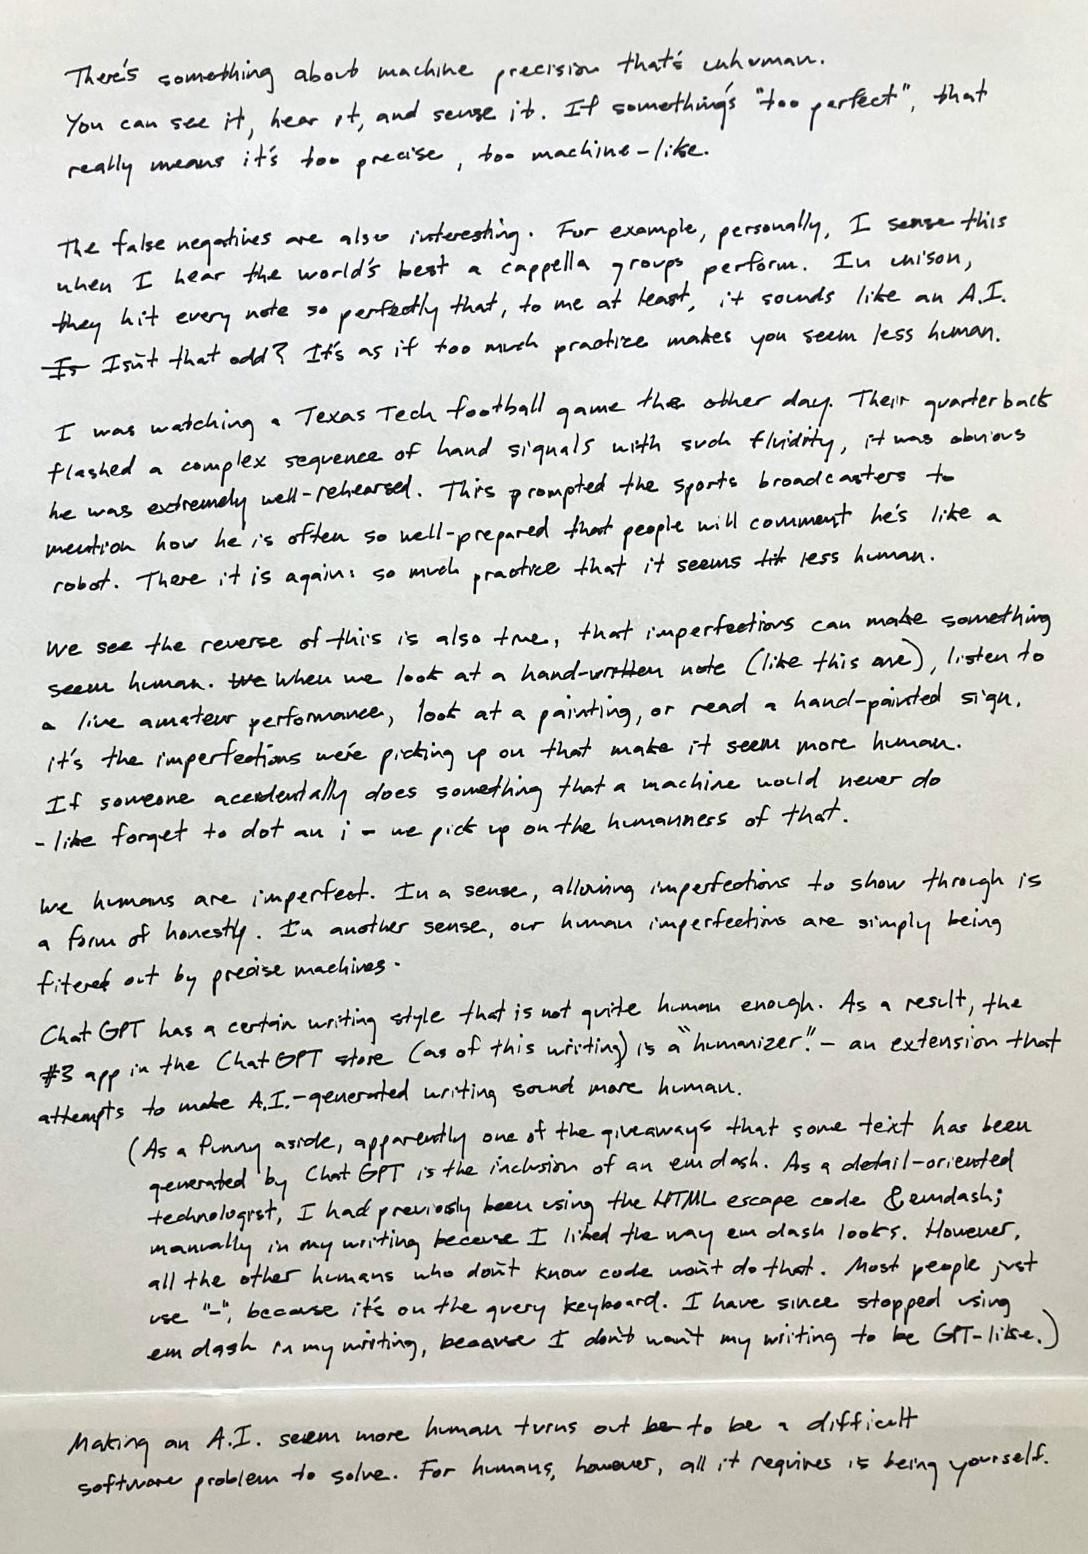 There's something about machine precision that's inhuman.
You can see it, hear it, and sense it. If something's "too perfect", that
really means it's too precise, too machine-like.
The false negatives are also interesting. For example, personally, I sense this
when I hear the world's best a cappella groups perform. In unison,
they hit every note so perfectly that, to me at least, it sounds like an A.I.
Is Isn't that odd? It's as if too much practice makes you seem less human.
I was watching a Texas Tech football game the other day. Their quarterback
flashed a complex sequence of hand signals with such fluidity, it was obvious
he was extremely well-rehearsed. This prompted the sports broadcasters to
mention how he is often so well-prepared that people will comment he's like a
robot. There it is again: so much practice that it seems less human.
We see the reverse of this is also true, that imperfections can make something
seem human. We When we look at a hand-written note (like this one), listen to
a live amateur performance, look at a painting, or read a hand-painted sign,
it's the imperfections we're picking up on that make it seem more human.
If someone accidentally does something that a machine would never do
- like forget to dot an i - we pick up on the humanness of that.
We humans are imperfect. In a sense, allowing imperfections to show through is
a form of honesty. In another sense, our human imperfections are simply being
fitered out by precise machines.
Chat GPT has a certain writing style that is not quite human enough. As a result, the
#3 app in the Chat GPT store (as of this writing) is a "humanizer". - an extension that
attempts to make A.I.-generated writing sound more human.
(As a funny aside, apparently one of the giveaways that some text has been
generated by Chat GPT is the inclusion of an em dash. As a detail-oriented
technologist, I had previously been using the HTML escape code &emdash;
manually in my writing because I liked the way em dash looks. However,
all the other humans who don't know code won't do that. Most people just
use "-", because it's on the query keyboard. I have since stopped using
em dash in my writing, because I don't want my writing to be GPT-like.)
Making an A.I. seem more human turns out be to be a difficult
software problem to solve. For humans, however, all it requires is being yourself.